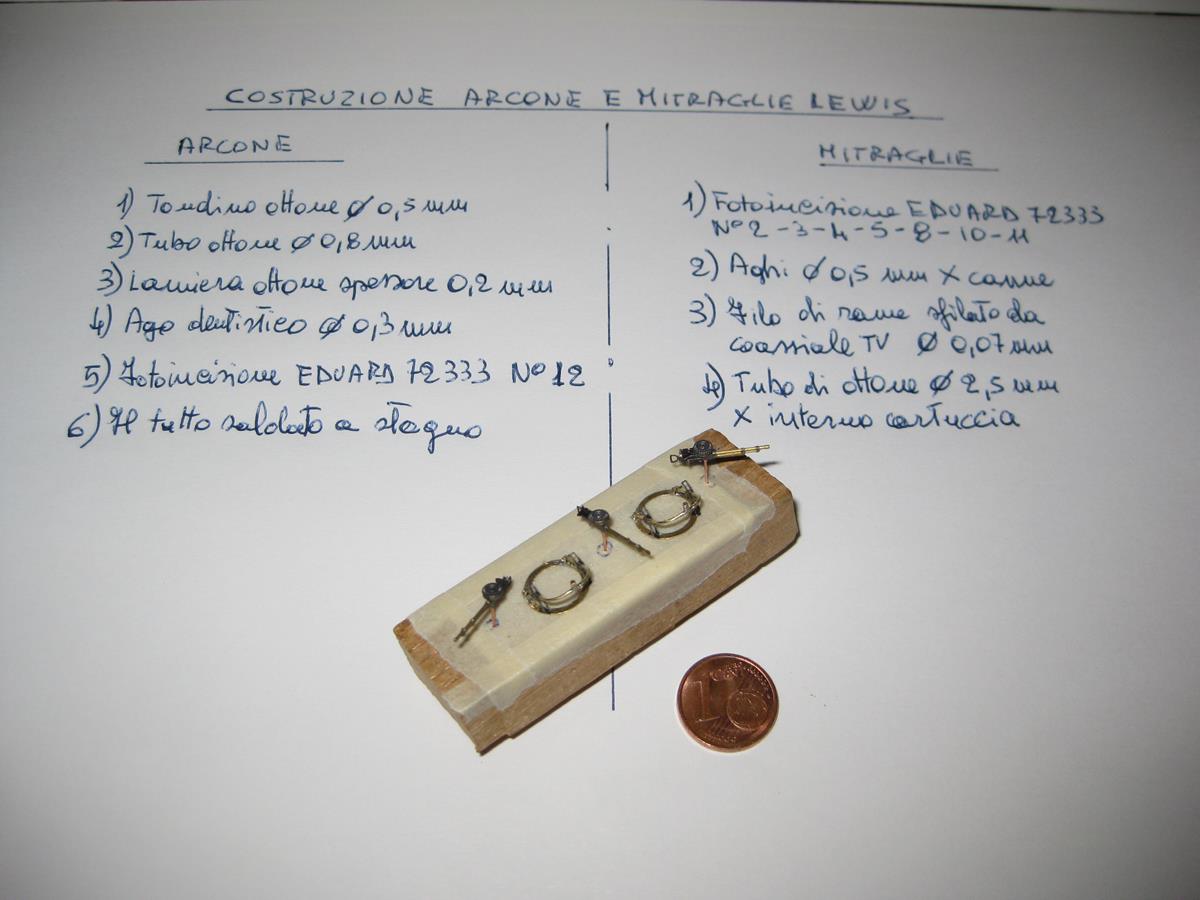 COSTRUZIONE ARCONE E MITRAGLIE LEWIS
ARCONE
1) Tondino ottone ø 0,5 mm
2) Tubo ottone ø 0,8 mm
3) Lamiera ottone spessore 0,2 mm
4) Ago dentistico ø 0,3 mm
5) Fotoincisione EDUARD 72333 N° 12
6) Il tutto saldato a stagno
MITRAGLIE
1) Fotoincisione EDUARD 72333
N° 2 - 3 - 4 - 5 - 8 - 10 - 11
2) Aghi ø 0,5 mm X canne
3) Filo di rame sfilato da
coassiale TV ø 0,07 mm
4) Tubo di ottone ø 2,5 mm
X interno cartuccia
1